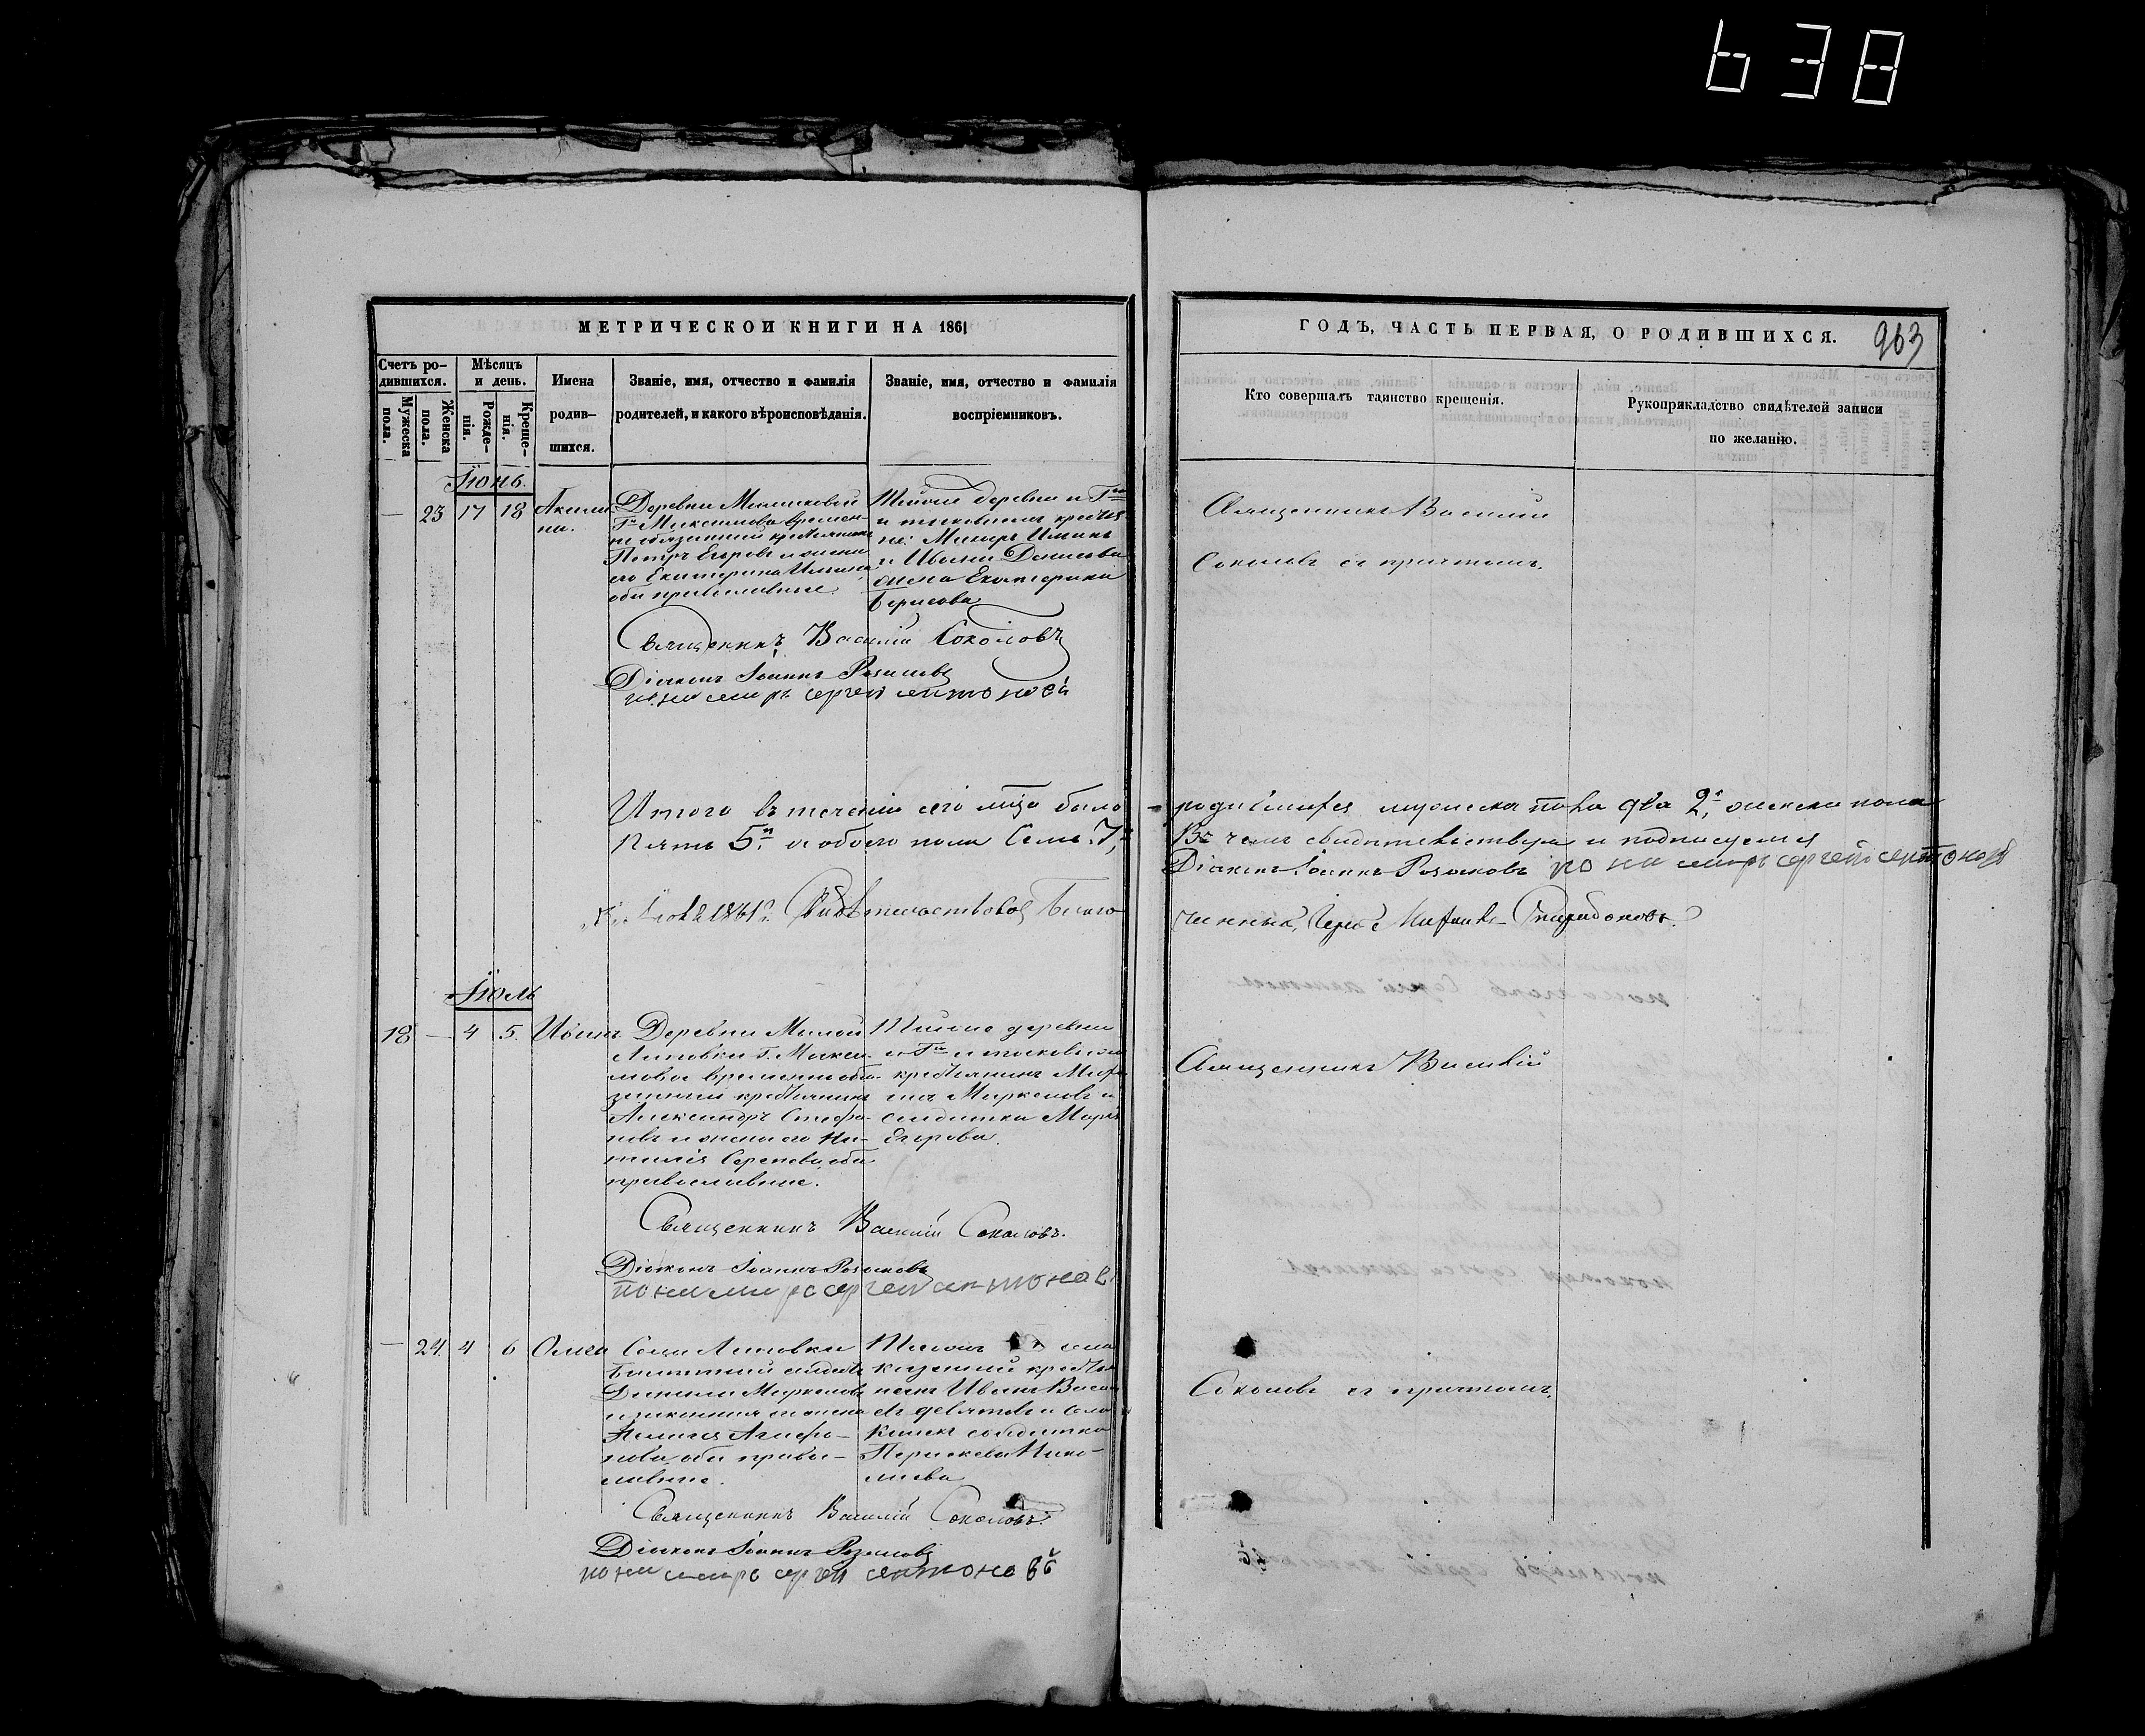 638
МЕТРИЧЕСКОЙ КНИГИ НА 1861
ГОДЪ, ЧАСТЬ ПЕРВАЯ, О РОДИВШИХСЯ.
963
Счетъ ро-
дившихся.
Мужеска
пола.
Женска
пола.
Мѣсяцъ
и день.
Рожде-
нія.
Креще-
нія.
Имена
родив-
шихся.
Званіе, имя, отчество и фамилія
родителей, и какого вѣроисповѣданія.
Званіе, имя, отчество и фамилія
воспріемниковъ.
Кто совершалъ таинство крещенія.
Рукоприкладство свидѣтелей записи
по желанію.
Іюнь.
— 23 17 18
Акили
на.
Деревни
Гна Максимова времен-
но обязанный крестьянинъ
Петръ Егоровъ и жена
его Екатерина
оба православные.
Тойже деревни и Гна
и таковыхъ
Макаръ
и Ивана Денисова
жена Екатерина
Борисова
Священникъ Василий
Соколовъ съ причтомъ.
Священникъ Василій Соколовъ
Діаконъ Іоаннъ Розановъ
пономарь сергей антоновъ
Итого въ теченіи сего мѣсяца было
родившихся мужеска пола два 2, женска пола
Пять 5. и обоего пола Семь 7,
Въ чемъ свидѣтельствуемъ и подписуемся
Діаконъ Іоаннъ Розановъ пономарь сергей антоновъ
1861 г. Свидѣтельствовалъ Благо-
чинный,
Іюль
18 — 4 5. Иванъ.
Деревни Малой
Липовки Г. Макси-
мова временнообя-
занный крестьянинъ
Александръ Стефа-
новъ и жена его На-
талія оба
православные.
Тойже деревни
и Гна и таковыхъ
крестьянинъ
Маркеловъ и
солдатка Марья
Егорова.
Священникъ Василій
Священникъ Василій Соколовъ.
Діаконъ Іоаннъ Розановъ
пономарь сергей антоновъ
— 24. 4 6 Ольга
Села Липовки
солдатъ
Данила Маркеловъ
и законная жена
нова оба право-
славные.
села
казенный крестья-
нинъ Иванъ
солдатка
Параскева Нико-
лаева
Соколовъ съ причтомъ.
Священникъ Василій Соколовъ.
Діаконъ Іоаннъ Розановъ
пономарь сергей антоновъ